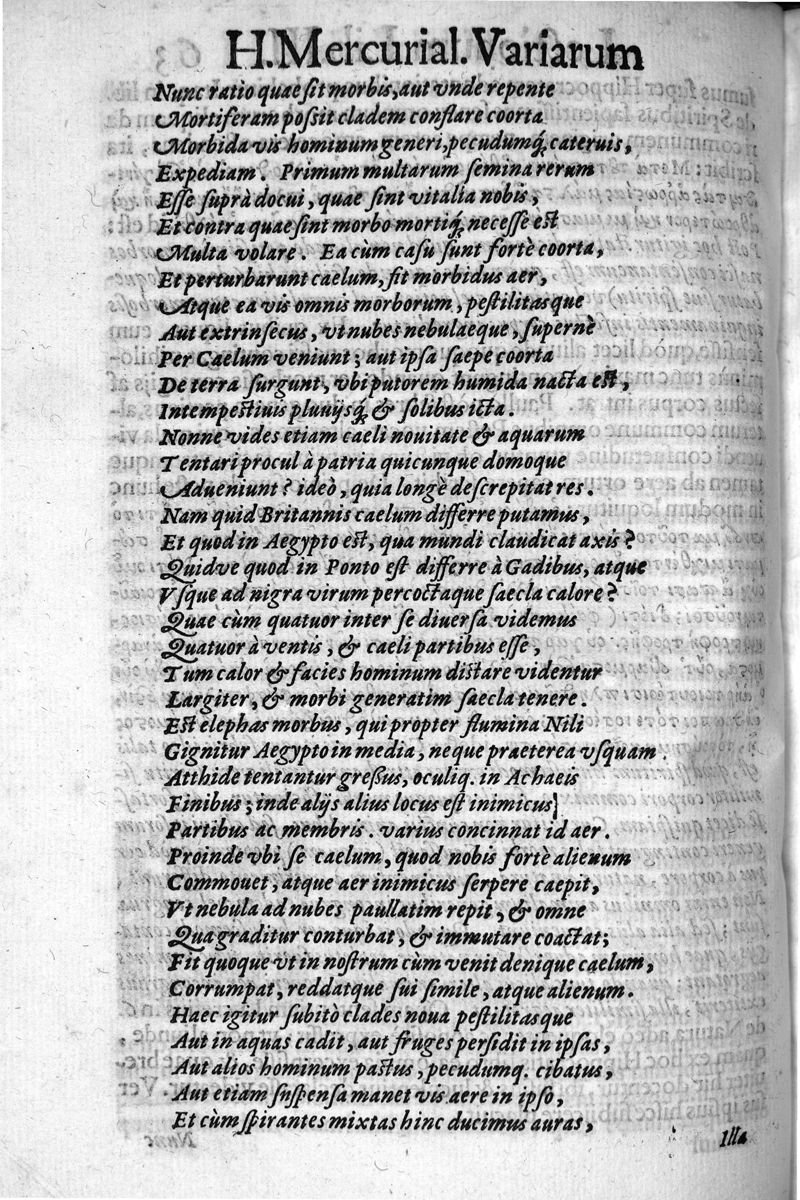 H.Mercurial.Variarum
Nunc ratio quae ſit morbis, aut vnde repente
Mortiferam poſſit cladem conflare coorta
Morbida vis hominum generi, pecudumq́; cateruis,
Expediam. Primum multarum ſemina rerum
Eſſe ſuprà docui, quae ſint vitalia nobis,
Et contra quae ſint morbo mortiq́; neceſſe eſt
Multa volare. Ea cùm caſu ſunt fortè coorta,
Et perturbarunt caelum, fit morbidus aer,
Atque ea vis omnis morborum, peſtilitasque
Aut extrinſecus, vt nubes nebulaeque, ſupernè
Per Caelum veniunt; aut ipſa ſaepe coorta
De terra ſurgunt, vbi putorem humida nacta eſt,
Intempeſtiuis pluuijsq́; & ſolibus icta.
Nonne vides etiam caeli nouitate & aquarum
Tentari procul à patria quicunque domoque
Adueniunt? ideò, quia longè deſcrepitat res.
Nam quid Britannis caelum differre putamus,
Et quod in Aegypto eſt, qua mundi claudicat axis?
Quidve quod in Ponto eſt differre à Gadibus, atque
Vſque ad nigra virum percoctaque ſaecla calore?
Quae cùm quatuor inter ſe diuerſa videmus
Quatuor à ventis, & caeli partibus eſſe,
Tum calor & facies hominum diſtare videntur
Largiter, & morbi generatim ſaecla tenere.
Eſt elephas morbus, qui propter flumina Nili
Gignitur Aegypto in media, neque praeterea vſquam.
Atthide tentantur greßus, oculiq. in Achaeis
Finibus; inde alijs alius locus eſt inimicus
Partibus ac membris. varius concinnat id aer.
Proinde vbi ſe caelum, quod nobis fortè alienum
Commouet, atque aer inimicus ſerpere caepit,
Vt nebula ad nubes paullatim repit, & omne
Qua graditur conturbat, & immutare coactat;
Fit quoque vt in noſtrum cùm venit denique caelum,
Corrumpat, reddatque ſui ſimile, atque alienum.
Haec igitur ſubitò clades noua peſtilitasque
Aut in aquas cadit, aut fruges perſidit in ipſas,
Aut alios hominum paſtus, pecudumq. cibatus,
Aut etiam ſuſpenſa manet vis aere in ipſo,
Et cùm ſpirantes mixtas hinc ducimus auras,
Illa